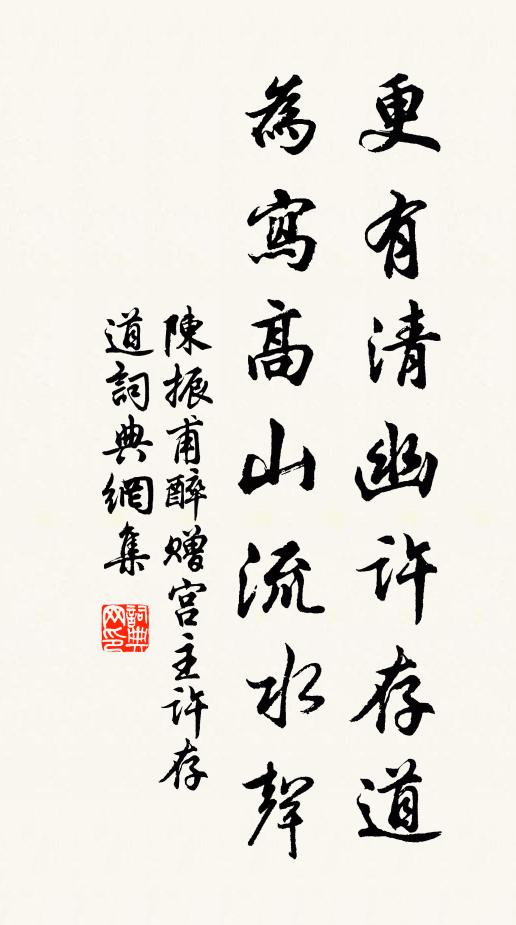 更有清幽許存道
為寫高山流水聲
陳振甫醉贈宮主許存
道詞典網集
詞典
网印